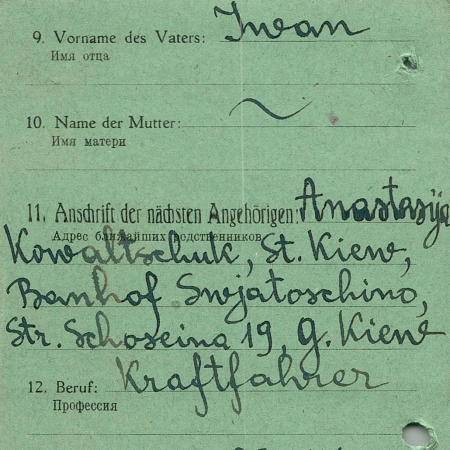 9. Vorname des Vaters: Iwan
Имя отца
10. Name der Mutter: ~
Имя матери
11. Anschrift der nächsten Angehörigen: Anastasija
Адрес ближайших родственников
Kowaltschuk, St. Kiew,
Banhof Swjatoschino,
Str. Schoseina 19, G. Kiew
12. Beruf: Kraftfahrer
Профессия